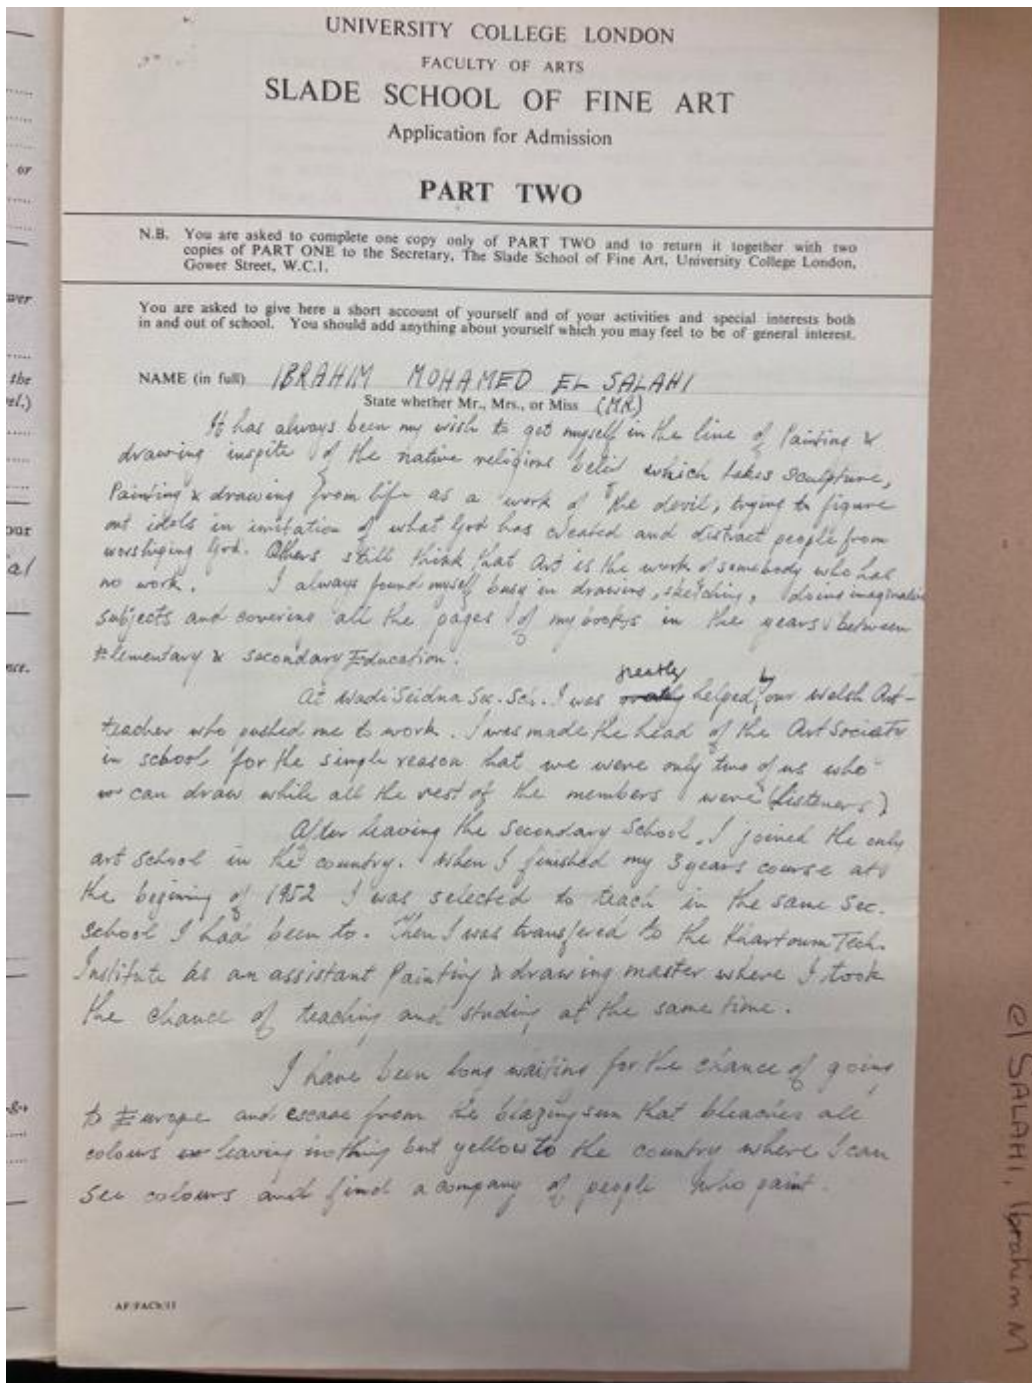 UNIVERSITY COLLEGE LONDON
FACULTY OF ARTS
SLADE SCHOOL OF FINE ART
Application for Admission
PART TWO
N.B. You are asked to complete one copy only of PART TWO and to return it together with two
copies of PART ONE to the Secretary, The Slade School of Fine Art, University College London,
Gower Street, W.C.1.
You are asked to give here a short account of yourself and of your activities and special interests both
in and out of school. You should add anything about yourself which you may feel to be of general interest.
NAME (in full) IBRAHIM MOHAMED EL SALAHI
State whether Mr., Mrs., or Miss (MR)
It has always been my wish to get myself in the line of Painting &
drawing inspite of the native religious which takes sculpture,
Painting & drawing from life as a work of the devil, trying to figure
out idols in imitation of what God has created and distract people from
worshiping God. Others still think that Art is the work of somebody who has
no work. I always found myself busy in drawing, sketching, doing imaginative
subjects and covering all the pages of my books in the years between
Elementary & Secondary Education.
At Wadi Seidna Sec. Sch. I was greatly helped by our Welsh Art-
teacher who pushed me to work. I was made the head of the Art Society
in school for the simple reason that we were only two of us who
can draw while all the rest of the members were (listeners)
After leaving the Secondary School, I joined the only
art school in the country. When I finished my 3 years course at
the begining of 1952 I was selected to teach in the same sec.
school I had been to. Then I was transfered to the Khartoum Tech.
Institute as an assistant Painting & drawing master where I took
the chance of teaching and studing at the same time.
I have been long waiting for the chance of going
to Europe and escape from the blazing sun that bleaches all
colours leaving nothing but yellow to the country where I can
see colours and find a company of people who paint.
AF/FAC9/11
el SALAHI, Ibrahim M
or
wer
the
el.)
our
al
nce.